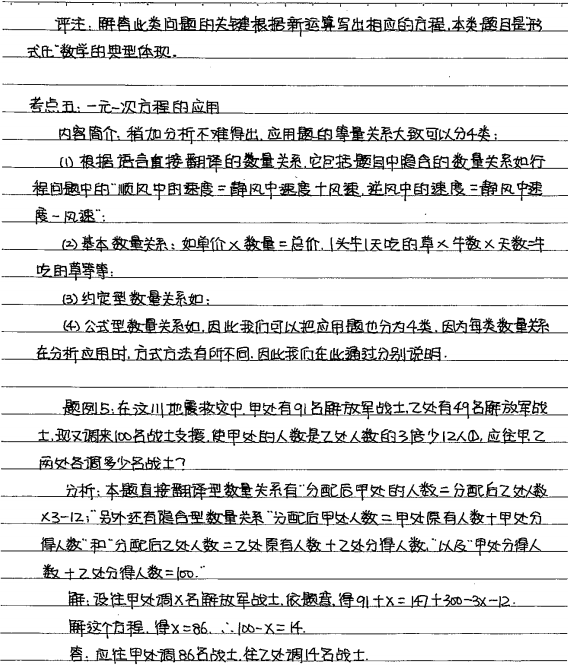 评注：解答此类问题的关键根据新运算写出相应的方程，本类题目是形
式化"数学的典型体现。
考点五：一元一次方程的应用
内容简介：稍加分析不难得出，应用题的等量关系大致可以分4类：
(1) 根据语言直接翻译的数量关系，它包括题目中隐含的数量关系如行
程问题中的"顺风中的速度=静风中速度+风速，逆风中的速度=静风中速
度-风速"；
(2) 基本数量关系：如单价×数量=总价，1头牛1天吃的草×牛数×天数=牛
吃的草等等；
(3) 约定型数量关系如：
(4) 公式型数量关系如，因此我们可以把应用题也分为4类，因为每类数量关系
在分析应用时，方式方法有所不同，因此我们在此通过分别说明．
题例5：在汶川地震救灾中，甲处有91名解放军战士，乙处有49名解放军战
士，现又调来100名战士支援，使甲处的人数是乙处人数的3倍少12人，应往甲乙
两处各调多少名战士？
分析：本题直接翻译型数量关系有"分配后甲处的人数=分配后乙处人数
×3-12；"另外还有隐含型数量关系"分配后甲处人数=甲处原有人数+甲处分
得人数"和"分配后乙处人数=乙处原有人数+乙处分得人数，"以及"甲处分得人
数+乙处分得人数=100．"
解：设往甲处调X名解放军战士，依题意，得91+X=147+300-3X-12．
解这个方程，得X=86．∴100-X=14．
答：应往甲处调86名战士，往乙处调14名战士．